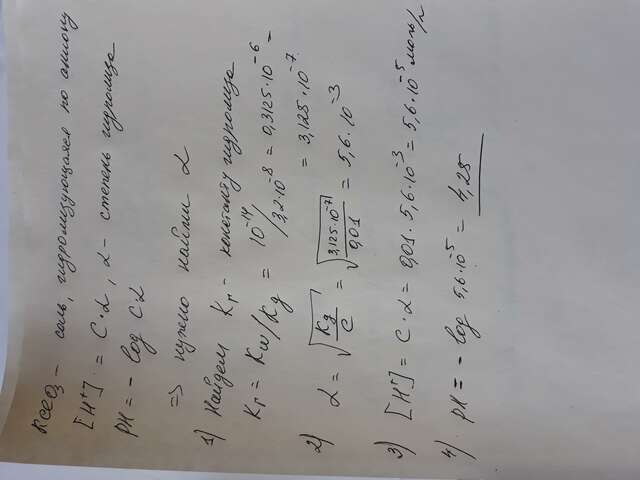 KClO₃ – соль, гидролизующаяся по аниону
[H⁺] = C·α, α – степень гидролиза
pH = – log C·α
=> нужно найти α
1) Найдем Kг – константу гидролиза
Kг = Kw/Kд = 10⁻¹⁴/3,2·10⁻⁸ = 0,3125·10⁻⁶ =
= 3,125·10⁻⁷
2) α = √(Kд/C) = √(3,125·10⁻⁷/0,01) = 5,6·10⁻³
3) [H⁺] = C·α = 0,01·5,6·10⁻³ = 5,6·10⁻⁵ моль/л
4) pH = – log 5,6·10⁻⁵ = 4,25